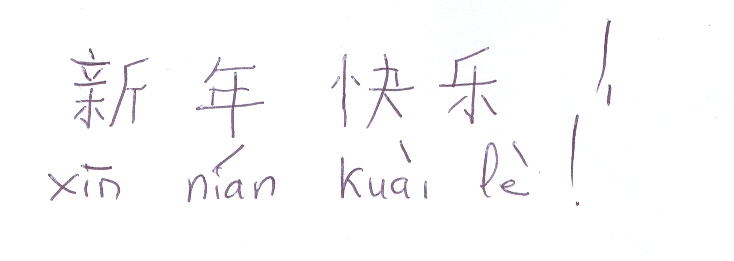 新年快乐!
xīn nián kuài lè!